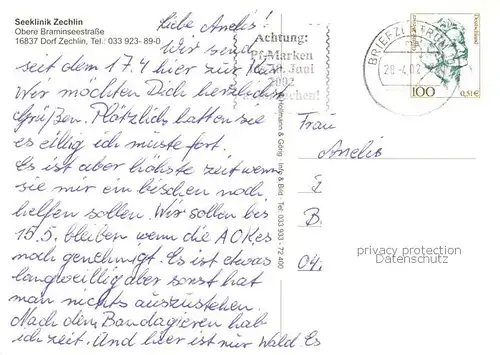 Seeklinik Zechlin
Obere Braminseestraße
16837 Dorf Zechlin, Tel.: 033 923- 89-0
Liebe Anelis!
Wir sind
seit dem 17.4 hier zur Kur
Wir möchten Dich herzlichst
Grüßen. Plötzlich hatten sie
es eillig ich müste fort.
Es ist aber höhste zeit wenn
sie mir ein bischen noch
helfen sollen. Wir sollen bis
15.5. bleiben wenn die AOK es
noch genehmigt. Es ist etwas
langweillig aber sonst hat
man nichts auszustehen.
Nach dem Bandagieren hab
ich zeit. Und hier ist nur Wald. Es
Achtung:
Pf-Marken
Juni
2002
BRIEFZENTRUM
20.-4.02
Deutschland
100
0,51€
Hoffmann & Göng Info & Bild Tel. 033 9331-72 400
Frau
Anelis
B.
04.
privacy protection
Datenschutz